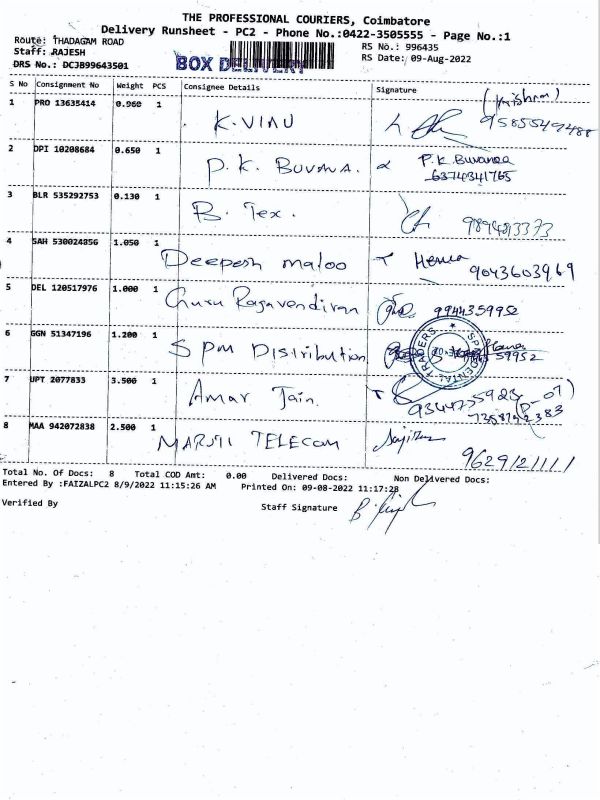 THE PROFESSIONAL COURIERS, Coimbatore
Delivery Runsheet - PC2 - Phone No.:0422-3505555 - Page No.:1
Route: THADAGAM ROAD
RS No.: 996435
Staff: RAJESH
RS Date: 09-Aug-2022
DRS No.: DCJB99643501
BOX DELIVERY
S No Consignment No Weight PCS Consignee Details Signature
1 PRO 13635414 0.960 1 K.VINU 9585549488
2 DPI 10208684 0.650 1 P.K. BUVANA. P.K Buvanaa
6374341765
3 BLR 535292753 0.130 1 B. Tex.
4 SAH 530024856 1.050 1 Deepesh maloo 9043603969
5 DEL 120517976 1.000 1 Guru Ragavendiran 9944359952
6 GGN 51347196 1.200 1 SPM Distribution 59952
7 UPT 2077833 3.500 1 Amar Jain.
8 MAA 942072838 2.500 1 MARUTI TELECOM 9629121111
Total No. Of Docs: 8 Total COD Amt: 0.00 Delivered Docs: Non Delivered Docs:
Entered By :FAIZALPC2 8/9/2022 11:15:26 AM Printed On: 09-08-2022 11:17:28
Verified By Staff Signature